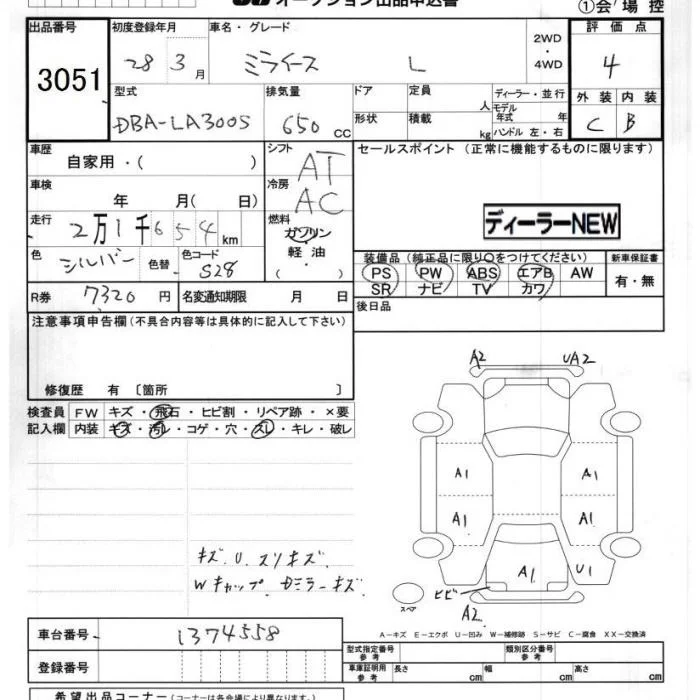 オークション出品申込書
①会場控
出品番号 初度登録年月 車名・グレード 評価点
3051 28 3月 ミライース L 2WD・4WD 4
型式 排気量 ドア 定員 人 ディーラー・並行 外装 内装
DBA-LA300S 650 cc 形状 積載 kg モデル年式 年 ハンドル 左・右 C B
車歴 自家用・( ) シフト AT セールスポイント (正常に機能するものに限ります)
車検 年 月( 日) 冷房 AC
走行 2万1千654km 燃料 ガソリン 軽油・( ) ディーラーNEW
色 シルバー 色替 色コード S28
装備品 (純正品に限り○をつけてください) 新車保証書
PS PW ABS エアB AW 有・無
SR ナビ TV カワ
R券 7320円 名変通知期限 月 日 後日品
注意事項申告欄(不具合内容等は具体的に記入して下さい)
修復歴 有 〔箇所 〕
検査員 FW キズ・飛石・ヒビ割・リペア跡・×要
記入欄 内装 キズ・汚レ・コゲ・穴・スレ・キレ・破レ
A2 UA2
A1 A1
A1 A1
A1 U1
ヒビ
A2
スペア
キズ U スリキズ
Wキャップ ドミラーキズ
A-キズ E-エクボ U-凹み W-補修跡 S-サビ C-腐食 XX-交換済
車台番号 1374558 型式指定番号 参考 類別区分番号 参考
登録番号 車庫証明用 参考 長さ cm 幅 cm 高さ cm
希望出品コーナー(コーナーは各会場により異なります)